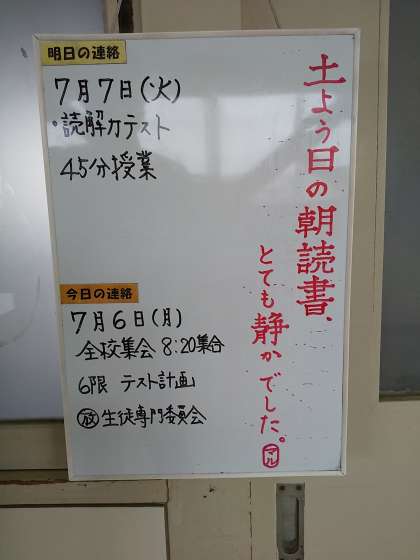 明日の連絡
7月7日(火)
・読解力テスト
45分授業
今日の連絡
7月6日(月)
全校集会 8:20集合
6限 テスト計画
放 生徒専門委員会
土よう日の朝読書、
とても静かでした。
マル